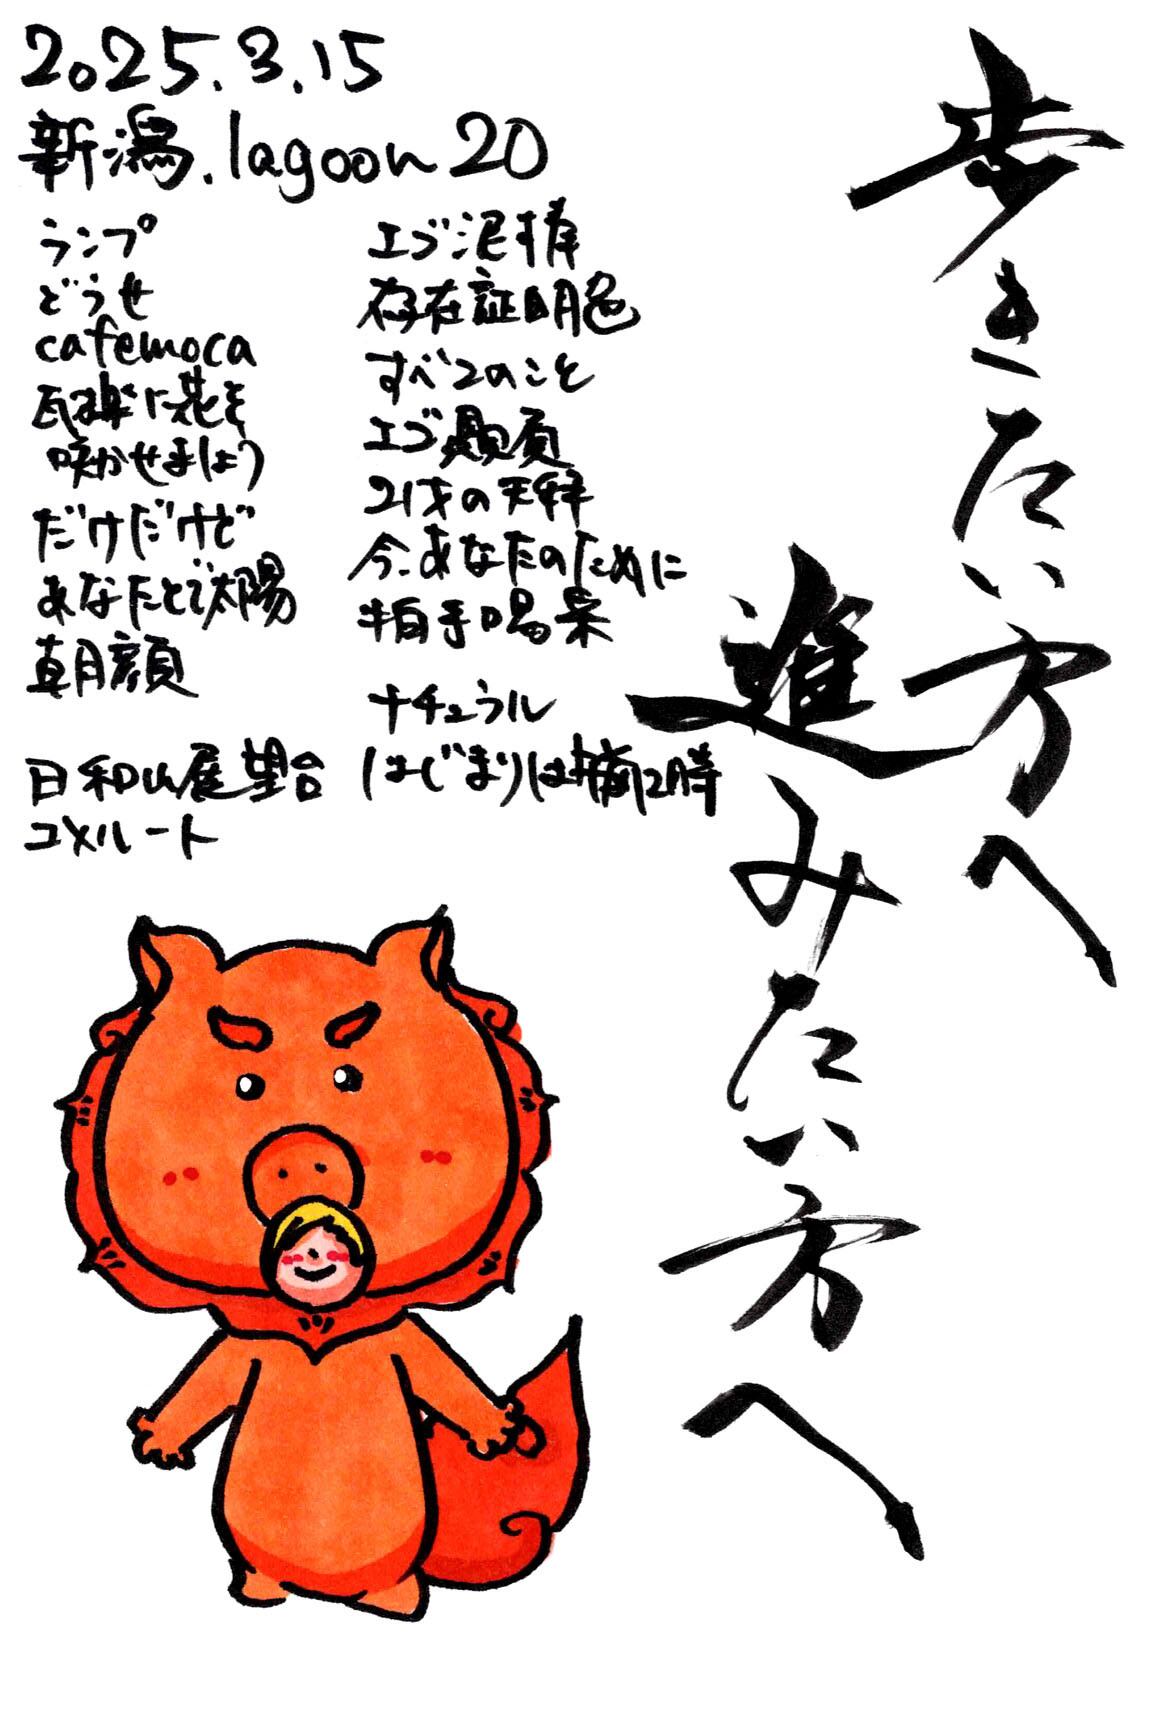 2025.3.15
新潟.lagoon20
ランプ
どうせ
cafemoca
瓦楽に花を
咲かせましょう
だけだけど
あなたとで太陽
朝顔
日和山展望台
ユメルート
エゴ泥棒
存在証明色
すべてのこと
エゴ贔屓
21才の天秤
今、あなたのために
拍手喝采
ナチュラル
はじまりは揃12時
歩きたい方へ
進みたい方へ